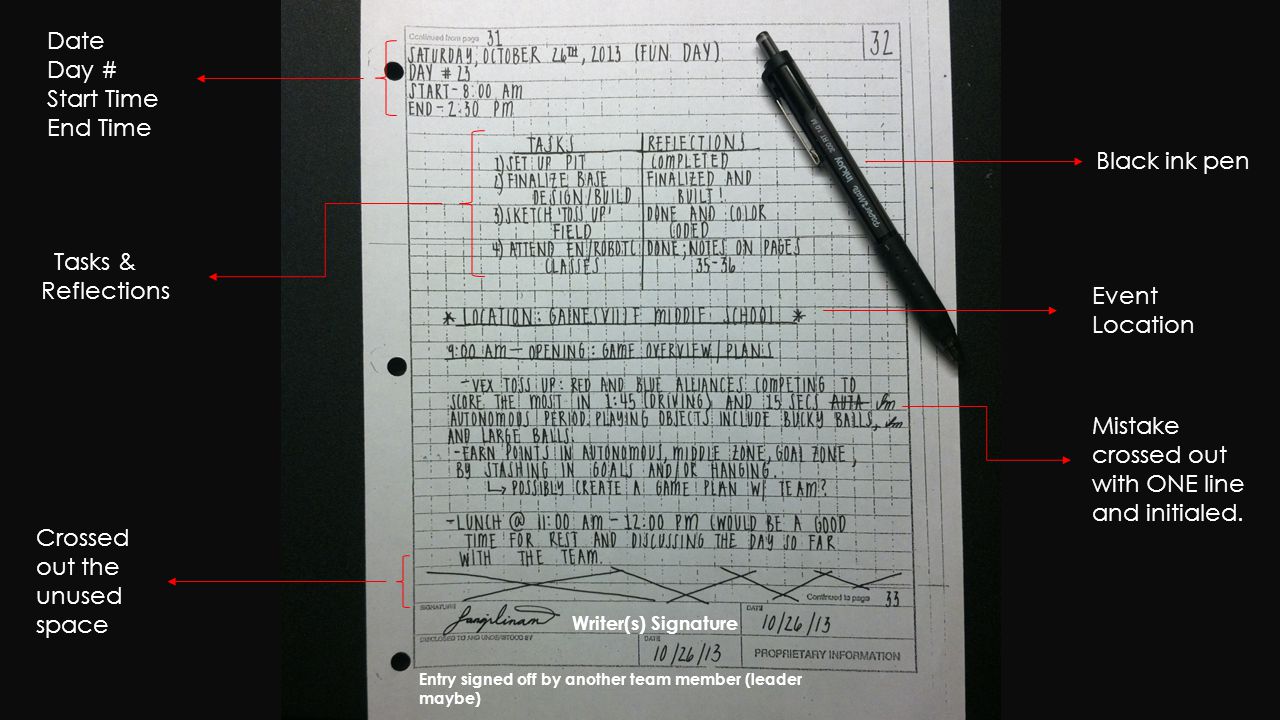 Date
Day #
Start Time
End Time
Tasks &
Reflections
Crossed
out the
unused
space
Continued from page 31
32
SATURDAY, OCTOBER 26TH, 2013 (FUN DAY)
DAY # 23
START- 8:00 AM
END - 2:30 PM
TASKS REFLECTIONS
1) SET UP PIT COMPLETED
2) FINALIZE BASE FINALIZED AND
DESIGN/BUILD BUILT!
3) SKETCH 'TOSS UP' DONE AND COLOR
FIELD CODED
4) ATTEND EN/ROBOTC DONE; NOTES ON PAGES
CLASSES 35-36
* LOCATION: GAINESVILLE MIDDLE SCHOOL *
9:00 AM — OPENING: GAME OVERVIEW/PLANS
-VEX TOSS UP: RED AND BLUE ALLIANCES COMPETING TO
SCORE THE MOST IN 1:45 (DRIVING) AND 15 SECS AUTA
AUTONOMOUS PERIOD. PLAYING OBJECTS INCLUDE BUCKY BALLS,
AND LARGE BALLS.
-EARN POINTS IN AUTONOMOUS, MIDDLE ZONE, GOAL ZONE,
BY STASHING IN GOALS AND/OR HANGING.
↳ POSSIBLY CREATE A GAME PLAN W/ TEAM?
-LUNCH @ 11:00 AM - 12:00 PM (WOULD BE A GOOD
TIME FOR REST AND DISCUSSING THE DAY SO FAR
WITH THE TEAM.
Continued to page 33
SIGNATURE
Writer(s) Signature
DATE
10/26/13
DISCLOSED TO AND UNDERSTOOD BY
DATE
10/26/13
PROPRIETARY INFORMATION
Entry signed off by another team member (leader
maybe)
Black ink pen
paper:mate InkJoy
Event
Location
Mistake
crossed out
with ONE line
and initialed.